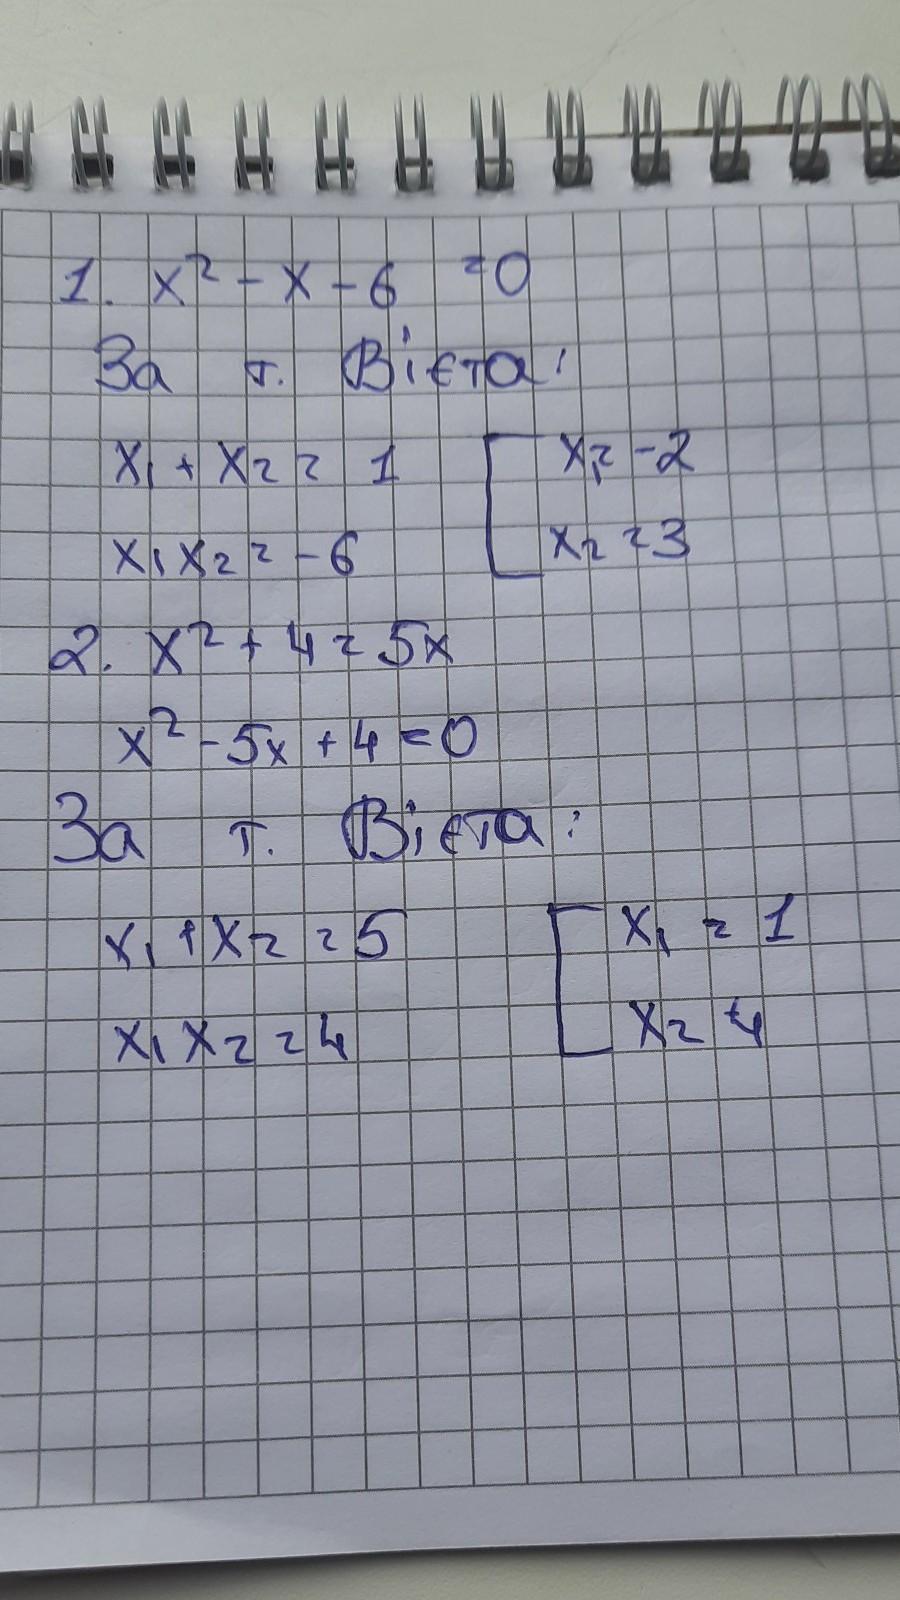 1. x² - x - 6 = 0
За т. Вієта:
x₁ + x₂ = 1 [ x₁ = -2
x₁x₂ = -6 x₂ = 3
2. x² + 4 = 5x
x² - 5x + 4 = 0
За т. Вієта:
x₁ + x₂ = 5 [ x₁ = 1
x₁x₂ = 4 x₂ = 4